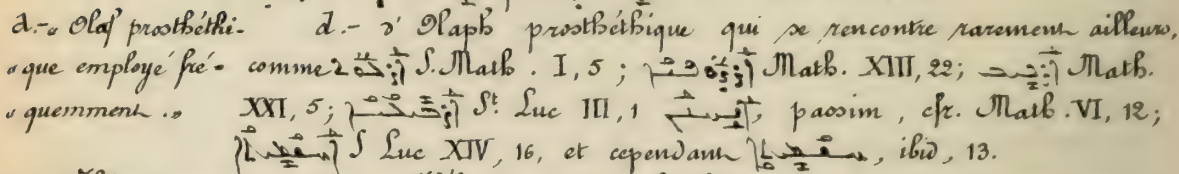 d.- „ Olaf prosthéthi-
„ que employé fré-
„ quemment. „
d.- d' Olaph prosthéthique qui se rencontre rarement ailleurs,
comme S. Math. I, 5 ; Math. XIII, 22; Math.
XXI, 5; St. Luc III, 1 , passim, cfr. Math. VI, 12;
S Luc XIV, 16, et cependant , ibid, 13.